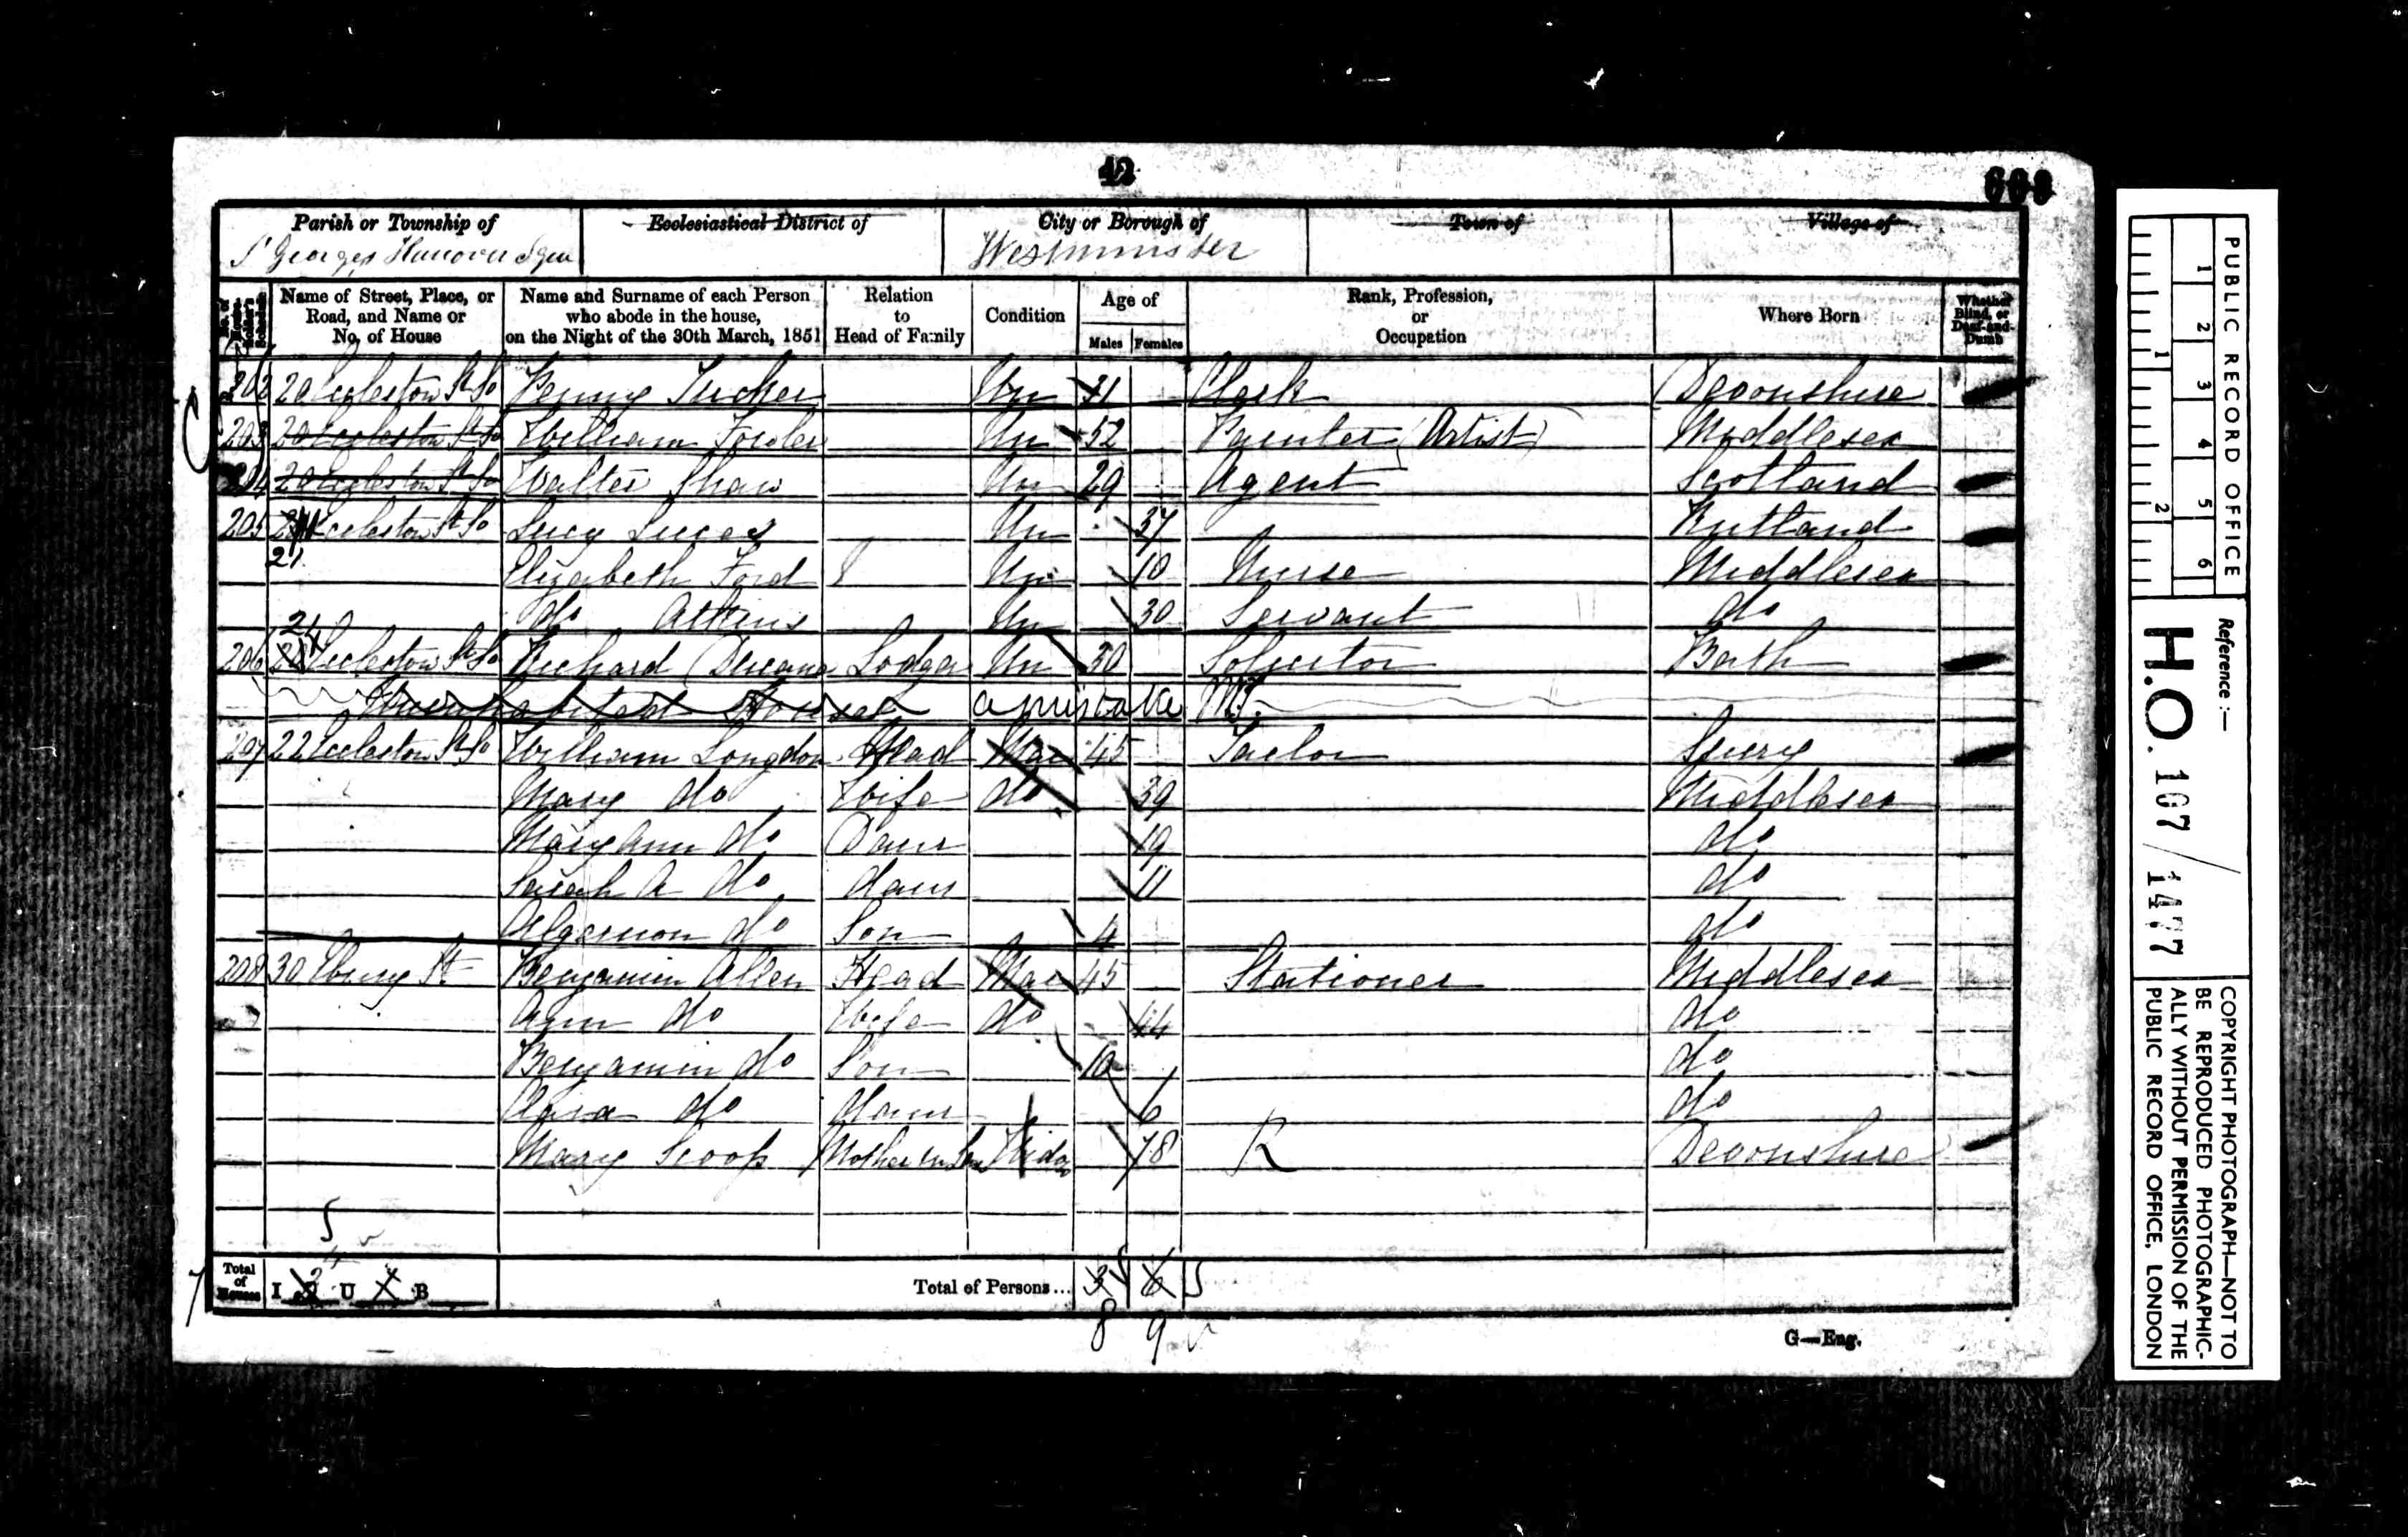 42
Parish or Township of
St Georges Hanover Sqre
Ecclesiastical District of
City or Borough of
Westminster
Town of
Village of
Name of Street, Place, or Road, and Name or No. of House
Name and Surname of each Person who abode in the house, on the Night of the 30th March, 1851
Relation to Head of Family
Condition
Age of
Males Females
Rank, Profession, or Occupation
Where Born
Whether Blind, or Deaf-and-Dumb
202 20 Eccleston St So Henry Tucker Un 31 Clerk Devonshire
203 20 Eccleston St So William Fowler Un 52 Painter (Artist) Middlesex
204 20 Eccleston St So Walter Shaw Un 29 Agent Scotland
205 Eccleston St So Lucy Lucas Un 37 Rutland
21 Elizabeth Ford Un 10 Nurse Middlesex
do Atkins Un 30 Servant do
206 21 Eccleston St So Richard Lodger Un 30 Solicitor Bath
Uninhabited House a mistake
207 22 Eccleston St So William Longdon Head Mar 45 Tailor Surry
Mary do Wife do 39 Middlesex
Mary Ann do Daur 19 do
Sarah A do daur 11 do
Algernon do Son 4 do
208 30 Ebury St Benjamin Allen Head Mar 45 Stationer Middlesex
Ann do Wife do 44 do
Benjamin do Son 10 do
do daur 6 do
Mary Scoop Mother in Law Widow 78 R Devonshire
5
Total of Houses I U B
Total of Persons... 5
8 9
7
G—Eng.
PUBLIC RECORD OFFICE
1 2 3 4 5 6
1 2
Reference :—
H.O. 107 / 1477
COPYRIGHT PHOTOGRAPH—NOT TO
BE REPRODUCED PHOTOGRAPHIC-
ALLY WITHOUT PERMISSION OF THE
PUBLIC RECORD OFFICE, LONDON